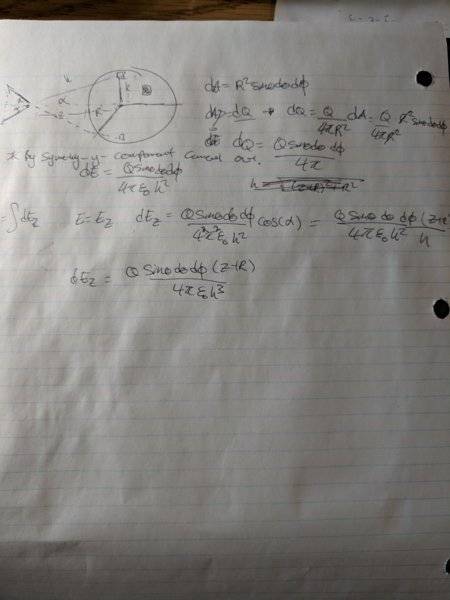 h
α
z
R
dA = R² sinθdθdϕ
dQ → dQ = Q/4πR² dA = Q/4πR² R² sinθdθdϕ
dQ = Q sinθ dθ dϕ/4π
* By symmetry y-component cancel out.
dE = Q sinθdθdϕ/4πε₀h²
h =
= ∫dE_z E = E_z dE_z = Q sinθ dθ dϕ/4²π²ε₀h² cos(α) = Q sinθ dθ dϕ (z+R)/4πε₀h² h
dE_z = Q sinθ dθ dϕ (z+R)/4πε₀h³